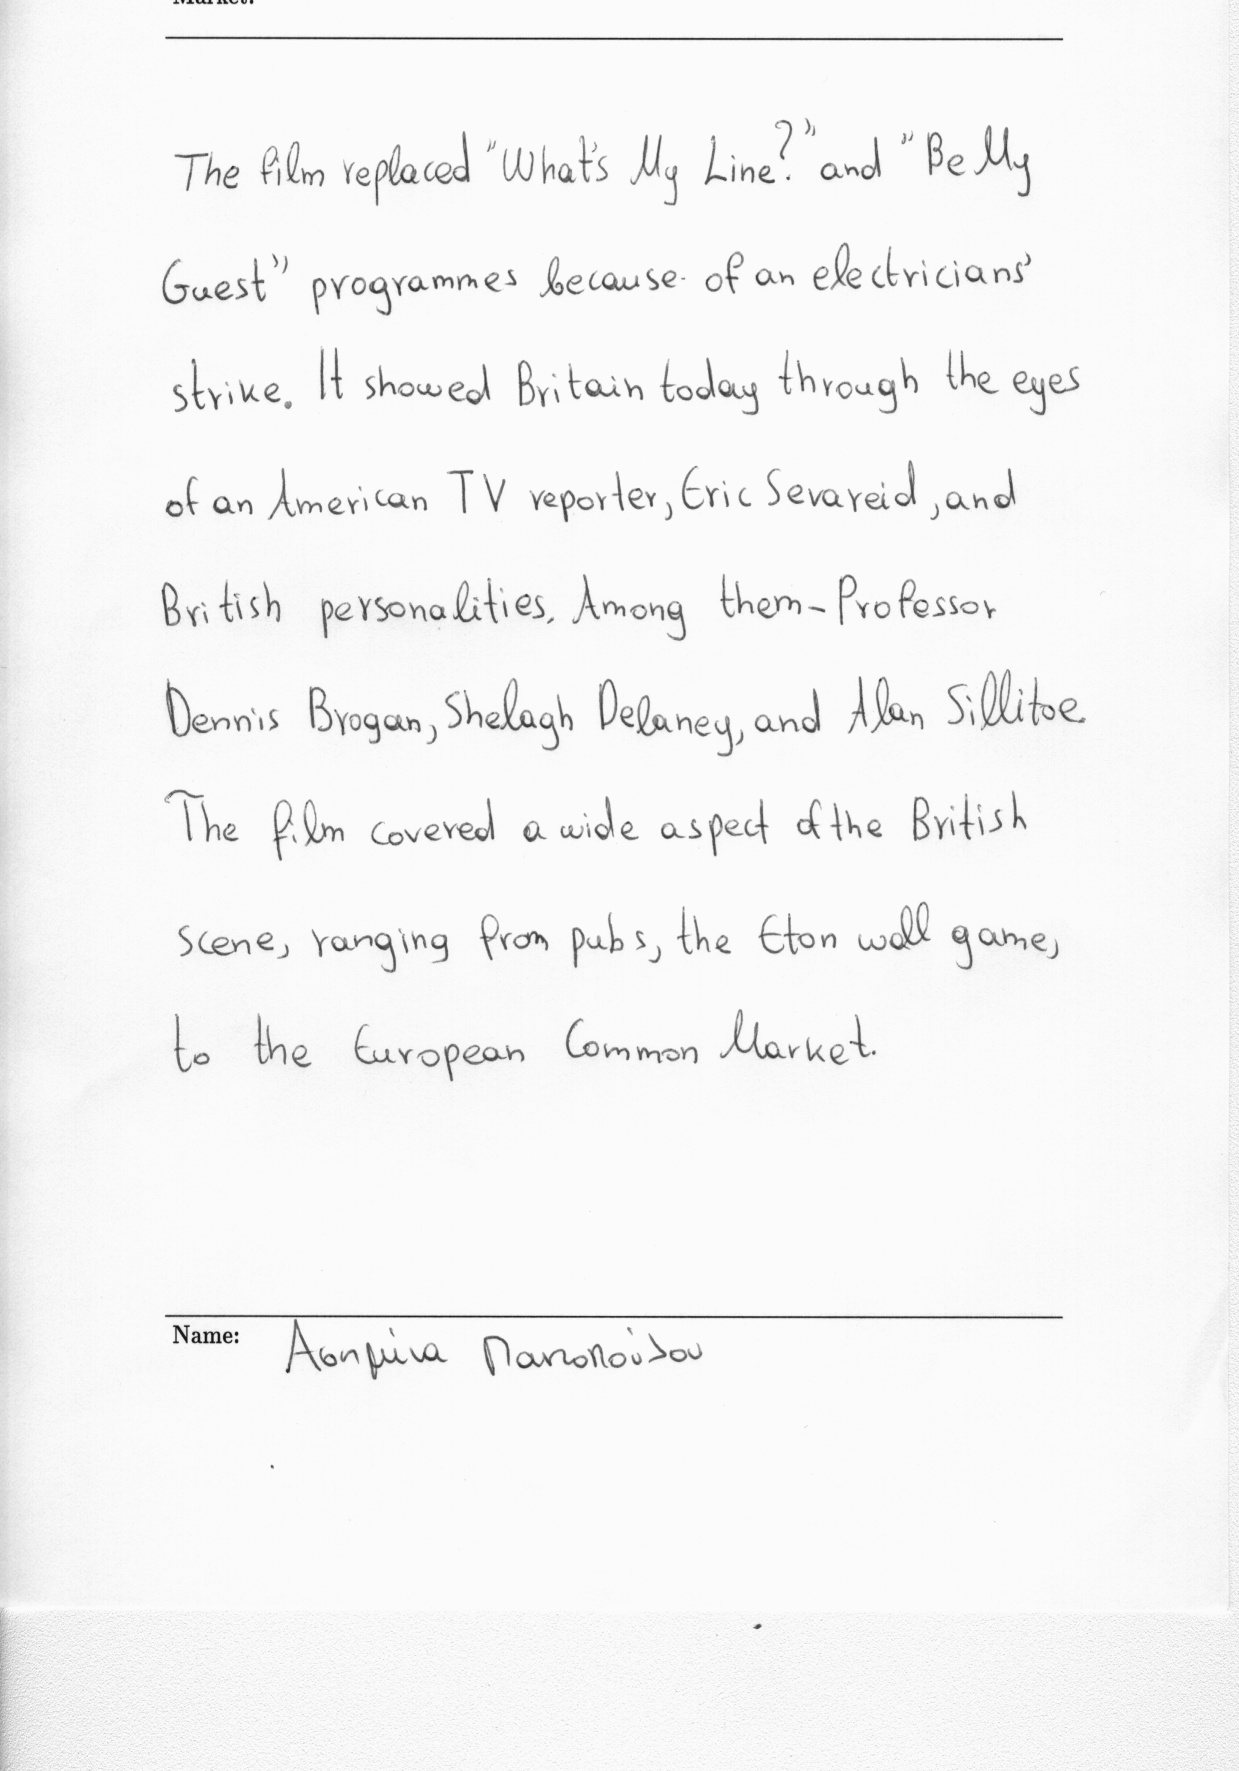 Market.
The film replaced "What's My Line?" and "Be My
Guest" programmes because of an electricians'
strike. It showed Britain today through the eyes
of an American TV reporter, Eric Sevareid, and
British personalities. Among them - Professor
Dennis Brogan, Shelagh Delaney, and Alan Sillitoe
The film covered a wide aspect of the British
scene, ranging from pubs, the Eton wall game,
to the European Common Market.
Name: Ασημίνα